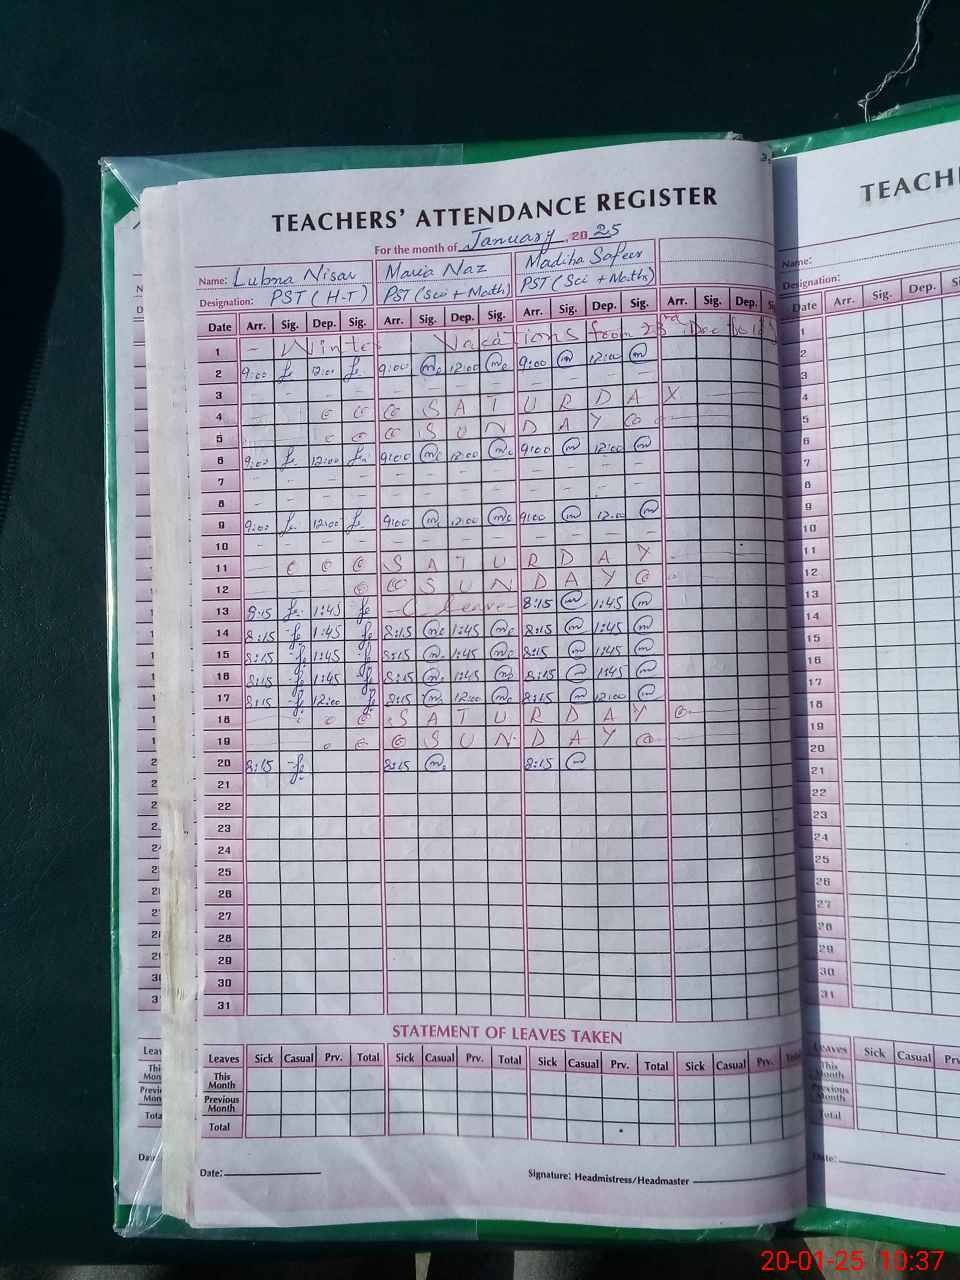 TEACHERS' ATTENDANCE REGISTER
For the month of January, 2025
Name: Lubna Nisar Maria Naz Madiha Safeer
Designation: PST (H-T) PST (Sci + Math) PST (Sci + Maths)
Date Arr. Sig. Dep. Sig. Arr. Sig. Dep. Sig. Arr. Sig. Dep. Sig. Arr. Sig. Dep.
1 - Winter Vacations from 23rd Dec
2 9:00 12:00 9:00 12:00 9:00 12:00
3 - - - - - - - - - - - -
4 SATURDAY
5 SUNDAY
6 9:00 12:00 9:00 12:00 9:00 12:00
7 - - - - - - - - - - - -
8 - - - - - - - - - - - -
9 9:00 12:00 9:00 12:00 9:00 12:00
10 - - - - - - - - - - - -
11 SATURDAY
12 SUNDAY
13 8:15 1:45 - C. Leave - 8:15 1:45
14 8:15 1:45 8:15 1:45 8:15 1:45
15 8:15 1:45 8:15 1:45 8:15 1:45
16 8:15 1:45 8:15 1:45 8:15 1:45
17 8:15 12:00 8:15 12:00 8:15 12:00
18 SATURDAY
19 SUNDAY
20 8:15 8:15 8:15
21
22
23
24
25
26
27
28
29
30
31
STATEMENT OF LEAVES TAKEN
Leaves Sick Casual Prv. Total Sick Casual Prv. Total Sick Casual Prv. Total Sick Casual Prv. Total
This Month
Previous Month
Total
Date: Signature: Headmistress/Headmaster
TEACH
Name:
Designation:
Date Arr. Sig. Dep.
1
2
3
4
5
6
7
8
9
10
11
12
13
14
15
16
17
18
19
20
21
22
23
24
25
26
27
28
29
30
31
Leaves Sick Casual
This Month
Previous Month
Total
Date:
20-01-25 10:37